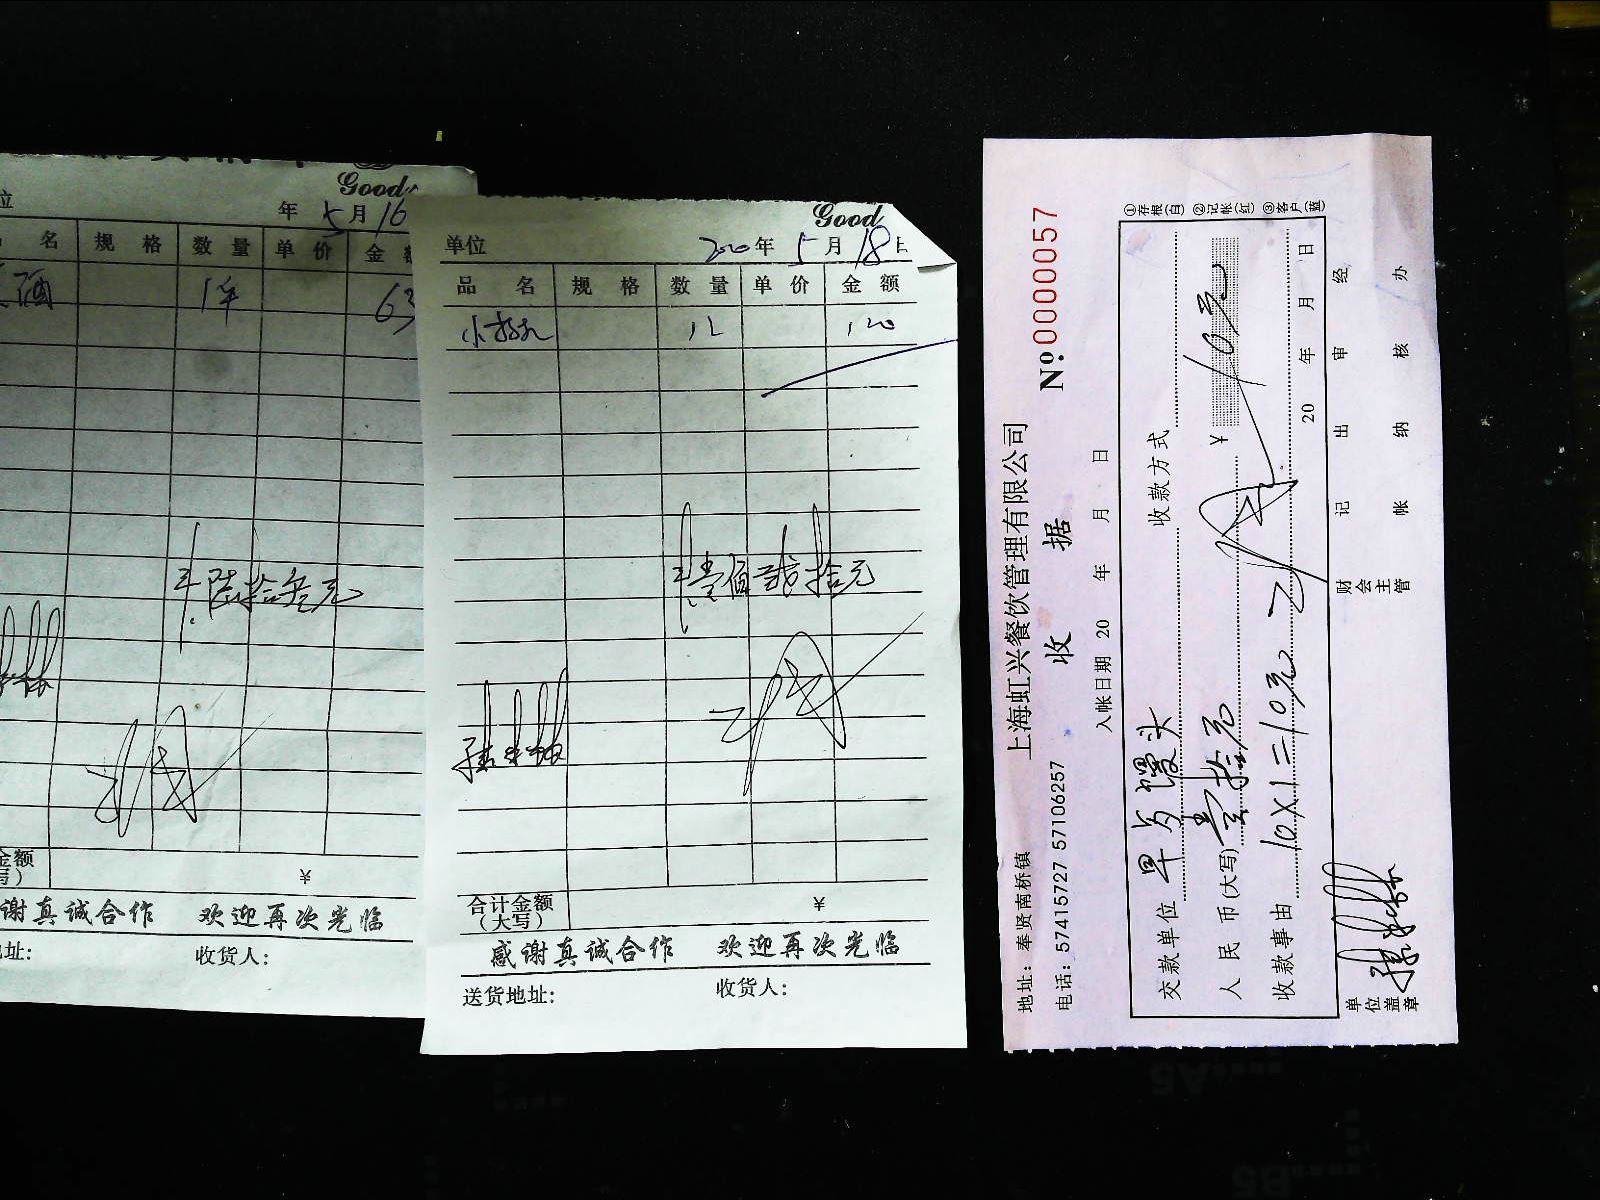 Good
位
年 5 月 16
名 规 格 数 量 单 价 金 额
酒 1件 63
陆拾叁元
金额
写)
¥
谢真诚合作 欢迎再次光临
址:
收货人:
Good
单位
2020 年 5 月 18 日
品 名 规 格 数 量 单 价 金 额
12 120
壹佰贰拾元
合计金额
(大写)
¥
感谢真诚合作 欢迎再次光临
送货地址:
收货人:
地址: 奉贤南桥镇
上海虹兴餐饮管理有限公司
电话: 57415727 57106257
收 据
№ 0000057
入帐日期 20 年 月 日
①存根(白) ②记帐(红) ③客户(蓝)
交款单位 早与馒头 收款方式
人民币(大写) 壹拾元 ¥ 10元
收款事由 10×1=10元
20 年 月 日
单位盖章
财会主管
记帐
出纳
审核
经办